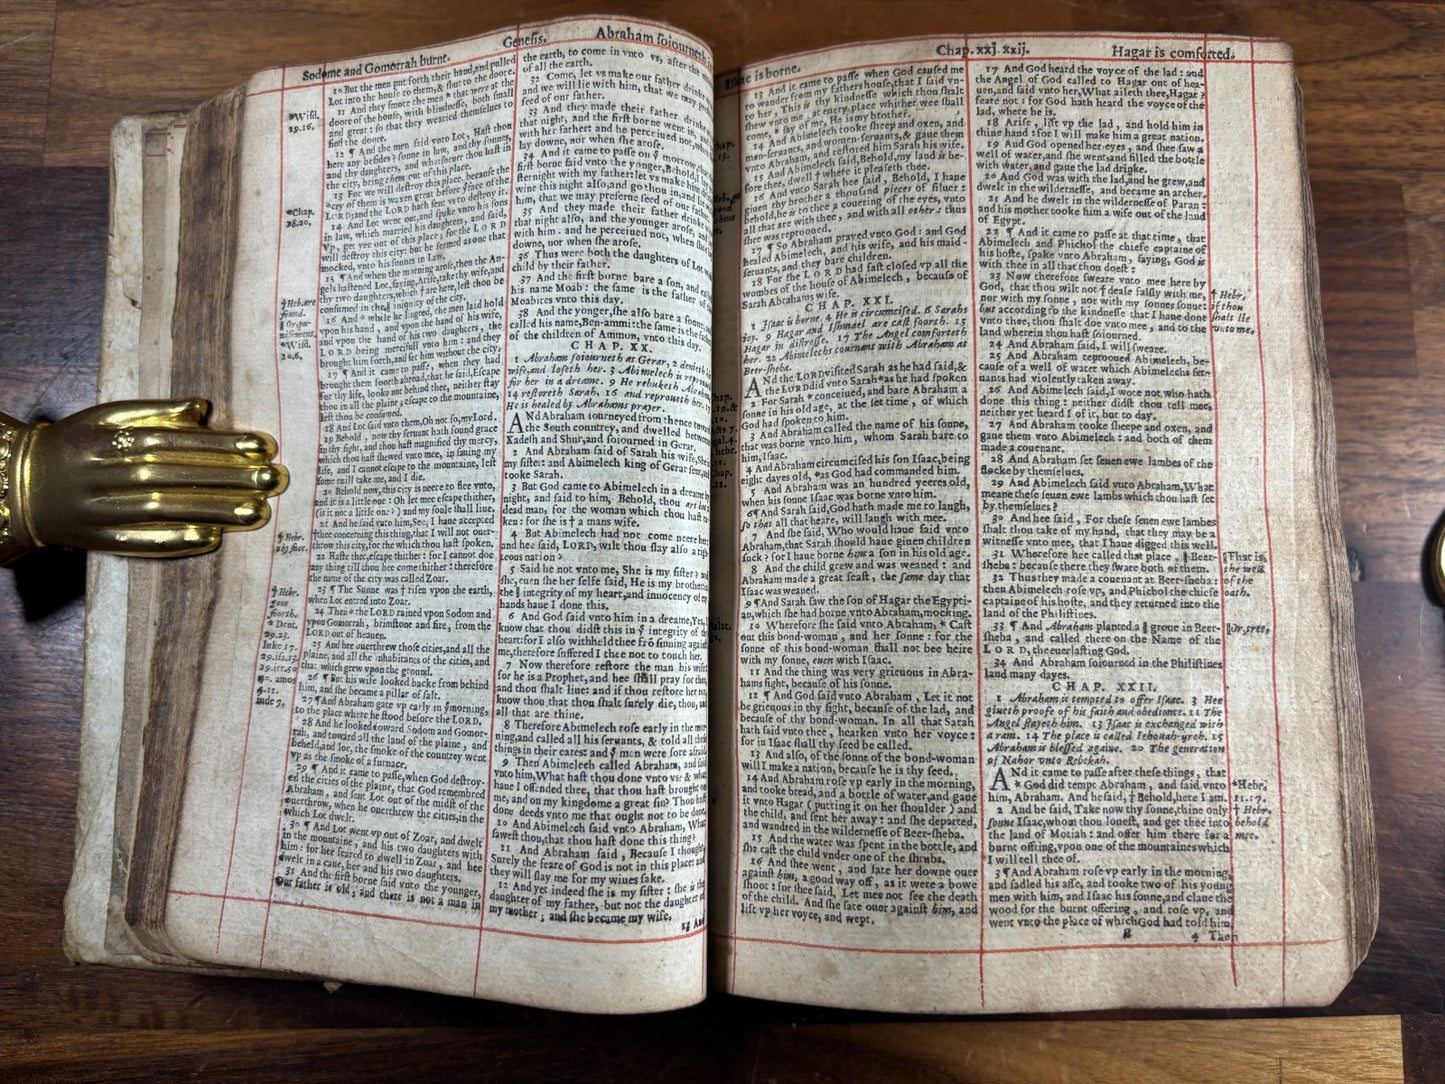 Sodome and Gomorrah burnt.
Geneſis.
Abraham ſojourneth
10 But the men put forth their hand, and pulled
Lot into the houſe to them, & ſhut to the doore.
11 And they ſmote the men * that were at the
doore of the houſe, with blindneſſe, both ſmall
and great: ſo that they wearied themſelues to
find the doore.
12 ¶ And the men ſaid vnto Lot, Haſt thou
here any beſides? ſonne in law, and thy ſonnes,
and thy daughters, and whatſoeuer thou haſt in
the city, bring them out of this place.
13 For we will deſtroy this place, becauſe the
*cry of them is waxen great before yͤ face of the
LORD; and the LORD hath ſent vs to deſtroy it.
14 And Lot went out, and ſpake vnto his ſons
in law, which married his daughters, and ſaid,
Vp, get yee out of this place; for the LORD
will deſtroy this city: but he ſeemed as one that
mocked, vnto his ſonnes in Law.
15 ¶ And when the morning aroſe, then the An-
gels haſtened Lot, ſaying, Ariſe, take thy wife, and
thy two daughters, which † are here, leſt thou be
conſumed in the ‖ iniquity of the city.
16 And * while he lingred, the men laid hold
vpon his hand, and vpon the hand of his wife,
and vpon the hand of his two daughters, the
LORD being mercifull vnto him: and they
brought him forth, and ſet him without the city.
17 ¶ And it came to paſſe, when they had
brought them foorth abroad, that he ſaid, Eſcape
for thy life, looke not behind thee, neither ſtay
thou in all the plaine; eſcape to the mountaine,
leſt thou be conſumed.
18 And Lot ſaid vnto them, Oh not ſo, my Lord.
19 Behold, now thy ſeruant hath found grace
in thy ſight, and thou haſt magnified thy mercy,
which thou haſt ſhewed vnto mee, in ſauing my
life, and I cannot eſcape to the mountaine, leſt
ſome euill take me, and I die.
20 Behold now, this city is neere to flee vnto,
and it is a little one: Oh let mee eſcape thither,
(is it not a little one?) and my ſoule ſhall liue.
21 And he ſaid vnto him, See, I haue accepted
†thee concerning this thing, that I will not ouer-
throw this city, for the which thou haſt ſpoken.
22 Haſte thee, eſcape thither: for I cannot doe
any thing till thou bee come thither: therefore
the name of the city was called Zoar.
23 ¶ The Sunne was † riſen vpon the earth,
when Lot entred into Zoar.
24 Then * the LORD rained vpon Sodom and
vpon Gomorrah, brimſtone and fire, from the
LORD out of heauen.
25 And hee ouerthrew thoſe cities, and all the
plaine, and all the inhabitants of the cities, and
that which grew vpon the ground.
26 ¶ But his wife looked backe from behind
him, and ſhe became a pillar of ſalt.
27 ¶ And Abraham gate vp early in yͤ morning,
to the place where he ſtood before the LORD.
28 And he looked toward Sodom and Gomor-
rah, and toward all the land of the plaine, and
beheld, and loe, the ſmoke of the countrey went
vp as the ſmoke of a furnace.
29 ¶ And it came to paſſe, when God deſtroy-
ed the cities of the plaine, that God remembred
Abraham, and ſent Lot out of the midſt of the
ouerthrow, when he ouerthrew the cities, in the
which Lot dwelt.
30 ¶ And Lot went vp out of Zoar, and dwelt
in the mountaine, and his two daughters with
him: for hee feared to dwell in Zoar, and hee
dwelt in a caue, her and his two daughters.
31 And the firſt borne ſaid vnto the younger,
Our father is old, and there is not a man in
*Wiſd.
19.16.
*Chap.
18.20.
†Heb. are
found.
‖ Or, pu-
niſhment.
*Wiſd.
10,6.
† Hebr.
thy face.
† Hebr.
gone
foorth.
* Deut.
29.23.
luke 17.
29. iſa. 13.
19. ier. 50
40. amos
4.11.
iude 7.
the earth, to come in vnto vs, after the
of all the earth.
32 Come, let vs make our father drinke
and we will lie with him, that we may
ſeed of our father.
33 And they made their father drinke
that night, and the firſt borne went in, and
with her father: and he perceiued not, when
lay downe, nor when ſhe aroſe.
34 And it came to paſſe on yͤ morrow, that
firſt borne ſaid vnto the yonger, Behold, I
ſternight with my father: let vs make him
wine this night alſo, and go thou in, and lie
him, that we may preſerue ſeed of our father.
35 And they made their father drinke
that night alſo, and the younger aroſe, and
with him: and he perceiued not, when ſhe
downe, nor when ſhe aroſe.
36 Thus were both the daughters of Lot with
child by their father.
37 And the firſt borne bare a ſon, and called
his name Moab: the ſame is the father of
Moabites vnto this day.
38 And the yonger, ſhe alſo bare a ſonne, and
called his name, Ben-ammi: the ſame is the father
of the children of Ammon, vnto this day.
CHAP. XX.
1 Abraham ſoiourneth at Gerar, 2 denieth his
wife, and loſeth her. 3 Abimelech is reproued
for her in a dreame. 9 He rebuketh Abraham,
14 reſtoreth Sarah, 16 and reproueth her. 17
He is healed by Abrahams prayer.
ANd Abraham iourneyed from thence toward
the South countrey, and dwelled betweene
Kadeſh and Shur, and ſoiourned in Gerar.
2 And Abraham ſaid of Sarah his wife, She is
my ſiſter: and Abimelech king of Gerar ſent, and
tooke Sarah.
3 But God came to Abimelech in a dreame by
night, and ſaid to him, Behold, thou art but a
dead man, for the woman which thou haſt ta-
ken: for ſhe is † a mans wife.
4 But Abimelech had not come neere her:
and hee ſaid, LORD, wilt thou ſlay alſo a righ-
teous nation?
5 Said he not vnto me, She is my ſiſter? and
ſhe, euen ſhe her ſelfe ſaid, He is my brother: in
the ‖ integrity of my heart, and innocency of my
hands haue I done this.
6 And God ſaid vnto him in a dreame, Yea, I
know that thou didſt this in yͤ integrity of thy
heart: for I alſo withheld thee frō ſinning againſt
me, therefore ſuffered I thee not to touch her.
7 Now therefore reſtore the man his wife:
for he is a Prophet, and hee ſhall pray for thee,
and thou ſhalt liue: and if thou reſtore her not,
know thou that thou ſhalt ſurely die, thou, and
all that are thine.
8 Therefore Abimelech roſe early in the mor-
ning, and called all his ſeruants, & told all theſe
things in their eares: and yͤ men were ſore afraid.
9 Then Abimelech called Abraham, and ſaid
vnto him, What haſt thou done vnto vs? & what
haue I offended thee, that thou haſt brought on
me, and on my kingdome a great ſin? Thou haſt
done deeds vnto me that ought not to be done.
10 And Abimelech ſaid vnto Abraham, What
ſaweſt thou, that thou haſt done this thing?
11 And Abraham ſaid, Becauſe I thought,
Surely the feare of God is not in this place: and
they will ſlay me for my wiues ſake.
12 And yet indeed ſhe is my ſiſter: ſhe is the
daughter of my father, but not the daughter of
my mother; and ſhe became my wife.
13 And
Iſaac is borne.
Chap. xxj. xxij.
Hagar is comforted.
13 And it came to paſſe when God cauſed me
to wander from my fathers houſe, that I ſaid vn-
to her, This is thy kindneſſe which thou ſhalt
ſhew vnto me, at euery place whither wee ſhall
come, * ſay of me, He is my brother.
14 And Abimelech tooke ſheep and oxen, and
men-ſeruants, and women-ſeruants, & gaue them
vnto Abraham, and reſtored him Sarah his wife.
15 And Abimelech ſaid, Behold, my land is be-
fore thee, dwell † where it pleaſeth thee.
16 And vnto Sarah hee ſaid, Behold, I haue
giuen thy brother a thouſand pieces of ſiluer:
behold, he is to thee a couering of the eyes, vnto
all that are with thee, and with all other: thus
ſhee was reprooued.
17 ¶ So Abraham prayed vnto God: and God
healed Abimelech, and his wife, and his maid-
ſeruants, and they bare children.
18 For the LORD had faſt cloſed vp all the
wombes of the houſe of Abimelech, becauſe of
Sarah Abrahams wife.
CHAP. XXI.
1 Iſaac is borne. 4 He is circumciſed. 6 Sarahs
ioy. 9 Hagar and Iſhmael are caſt foorth. 15
Hagar in diſtreſſe. 17 The Angel comforteth
her. 22 Abimelechs couenant with Abraham at
Beer-ſheba.
ANd the LORD viſited Sarah as he had ſaid, &
the LORD did vnto Sarah * as he had ſpoken
2 For Sarah * conceiued, and bare Abraham a
ſonne in his old age, at the ſet time, of which
God had ſpoken to him.
3 And Abraham called the name of his ſonne,
that was borne vnto him, whom Sarah bare to
him, Iſaac.
4 And Abraham circumciſed his ſon Iſaac, being
eight dayes old, *as God had commanded him.
5 And Abraham was an hundred yeeres old,
when his ſonne Iſaac was borne vnto him.
6 ¶ And Sarah ſaid, God hath made me to laugh,
ſo that all that heare, will laugh with mee.
7 And ſhe ſaid, Who would haue ſaid vnto
Abraham, that Sarah ſhould haue giuen children
ſuck? for I haue borne him a ſon in his old age.
8 And the child grew and was weaned: and
Abraham made a great feaſt, the ſame day that
Iſaac was weaned.
9 ¶ And Sarah ſaw the ſon of Hagar the Egypti-
an, which ſhe had borne vnto Abraham, mocking.
10 Wherefore ſhe ſaid vnto Abraham, * Caſt
out this bond-woman, and her ſonne: for the
ſonne of this bond-woman ſhall not bee heire
with my ſonne, euen with Iſaac.
11 And the thing was very grieuous in Abra-
hams ſight, becauſe of his ſonne.
12 ¶ And God ſaid vnto Abraham, Let it not
be grieuous in thy ſight, becauſe of the lad, and
becauſe of thy bond-woman. In all that Sarah
hath ſaid vnto thee, hearken vnto her voyce:
for in Iſaac ſhall thy ſeed be called.
13 And alſo, of the ſonne of the bond-woman
will I make a nation, becauſe he is thy ſeed.
14 And Abraham roſe vp early in the morning,
and tooke bread, and a bottle of water, and gaue
it vnto Hagar (putting it on her ſhoulder) and
the child, and ſent her away: and ſhe departed,
and wandred in the wilderneſſe of Beer-ſheba.
15 And the water was ſpent in the bottle, and
ſhe caſt the child vnder one of the ſhrubs.
16 And ſhee went, and ſate her downe ouer
againſt him, a good way off, as it were a bowe
ſhoot: for ſhee ſaid, Let mee not ſee the death
of the child. And ſhe ſate ouer againſt him, and
lift vp her voyce, and wept.
17 And God heard the voyce of the lad: and
the Angel of God called to Hagar out of hea-
uen, and ſaid vnto her, What aileth thee, Hagar?
feare not: for God hath heard the voyce of the
lad, where he is.
18 Ariſe, lift vp the lad, and hold him in
thine hand: for I will make him a great nation.
19 And God opened her eyes, and ſhee ſaw a
well of water, and ſhe went, and filled the bottle
with water, and gaue the lad drinke.
20 And God was with the lad, and he grew, and
dwelt in the wilderneſſe, and became an archer.
21 And he dwelt in the wilderneſſe of Paran:
and his mother tooke him a wife out of the land
of Egypt.
22 ¶ And it came to paſſe at that time, that
Abimelech and Phichol the chiefe captaine of
his hoſte, ſpake vnto Abraham, ſaying, God is
with thee in all that thou doeſt:
23 Now therefore ſweare vnto mee here by
God, that thou wilt not † deale falſly with me,
nor with my ſonne, nor with my ſonnes ſonne:
but according to the kindneſſe that I haue done
vnto thee, thou ſhalt doe vnto mee, and to the
land wherein thou haſt ſoiourned.
24 And Abraham ſaid, I will ſweare.
25 And Abraham reprooued Abimelech, be-
cauſe of a well of water which Abimelechs ſer-
uants had violently taken away.
26 And Abimelech ſaid, I wote not who hath
done this thing: neither didſt thou tell mee,
neither yet heard I of it, but to day.
27 And Abraham tooke ſheepe and oxen, and
gaue them vnto Abimelech: and both of them
made a couenant.
28 And Abraham ſet ſeuen ewe lambes of the
flocke by themſelues.
29 And Abimelech ſaid vnto Abraham, What
meane theſe ſeuen ewe lambs which thou haſt ſet
by themſelues?
30 And hee ſaid, For theſe ſeuen ewe lambes
ſhalt thou take of my hand, that they may be a
witneſſe vnto mee, that I haue digged this well.
31 Wherefore hee called that place, ‖ Beer-
ſheba: becauſe there they ſware both of them.
32 Thus they made a couenant at Beer-ſheba:
then Abimelech roſe vp, and Phichol the chiefe
captaine of his hoſte, and they returned into the
land of the Philiſtines.
33 ¶ And Abraham planted a ‖ groue in Beer-
ſheba, and called there on the Name of the
LORD, the euerlaſting God.
34 And Abraham ſoiourned in the Philiſtines
land many dayes.
CHAP. XXII.
1 Abraham is tempted to offer Iſaac. 3 Hee
giueth proofe of his faith and obedience. 11 The
Angel ſtayeth him. 13 Iſaac is exchanged with
a ram. 14 The place is called Iehouah-ijreh. 15
Abraham is bleſſed againe. 20 The generation
of Nahor vnto Rebekah.
ANd it came to paſſe after theſe things, that
* God did tempt Abraham, and ſaid vnto
him, Abraham. And he ſaid, † Behold, here I am.
2 And he ſaid, Take now thy ſonne, thine only
ſonne Iſaac, whom thou loueſt, and get thee into
the land of Moriah: and offer him there for a
burnt offring, vpon one of the mountaines which
I will tell thee of.
3 ¶ And Abraham roſe vp early in the morning,
and ſadled his aſſe, and tooke two of his yong
men with him, and Iſaac his ſonne, and claue the
wood for the burnt offering, and roſe vp, and
went vnto the place of which God had told him.
B
4 Then
† Hebr.
if thou
ſhalt lie
vnto me.
‖ That is,
the well
of the
oath.
‖ Or, tree.
*Hebr.
11.17.
† Hebr.
behold
mee.